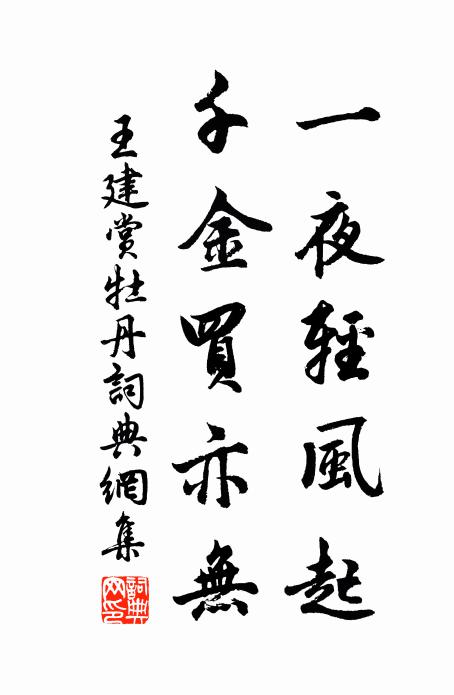 一夜輕風起
千金買亦無
王建賞牡丹詞典網集
詞典網印